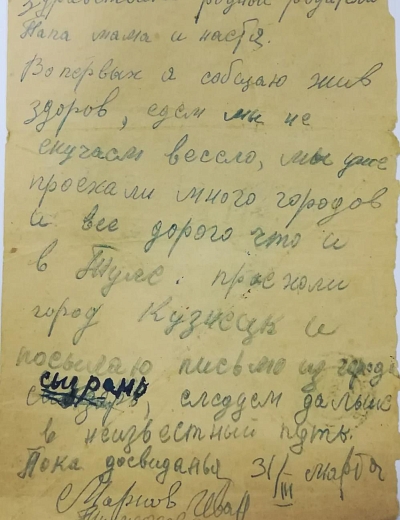 Здравствуйте родные родители
Папа мама и настя.
Вопервых я собщаю жив
здоров, едем мы не
скучаем весело, мы уже
проехали много городов
и все дорого что и
в Туле. проехали
город Кузнецк и
посылаю письмо из города
сызрань, следуем дальше
в неизвестный путь.
Пока досвиданья 31/III марта
Марков Иван